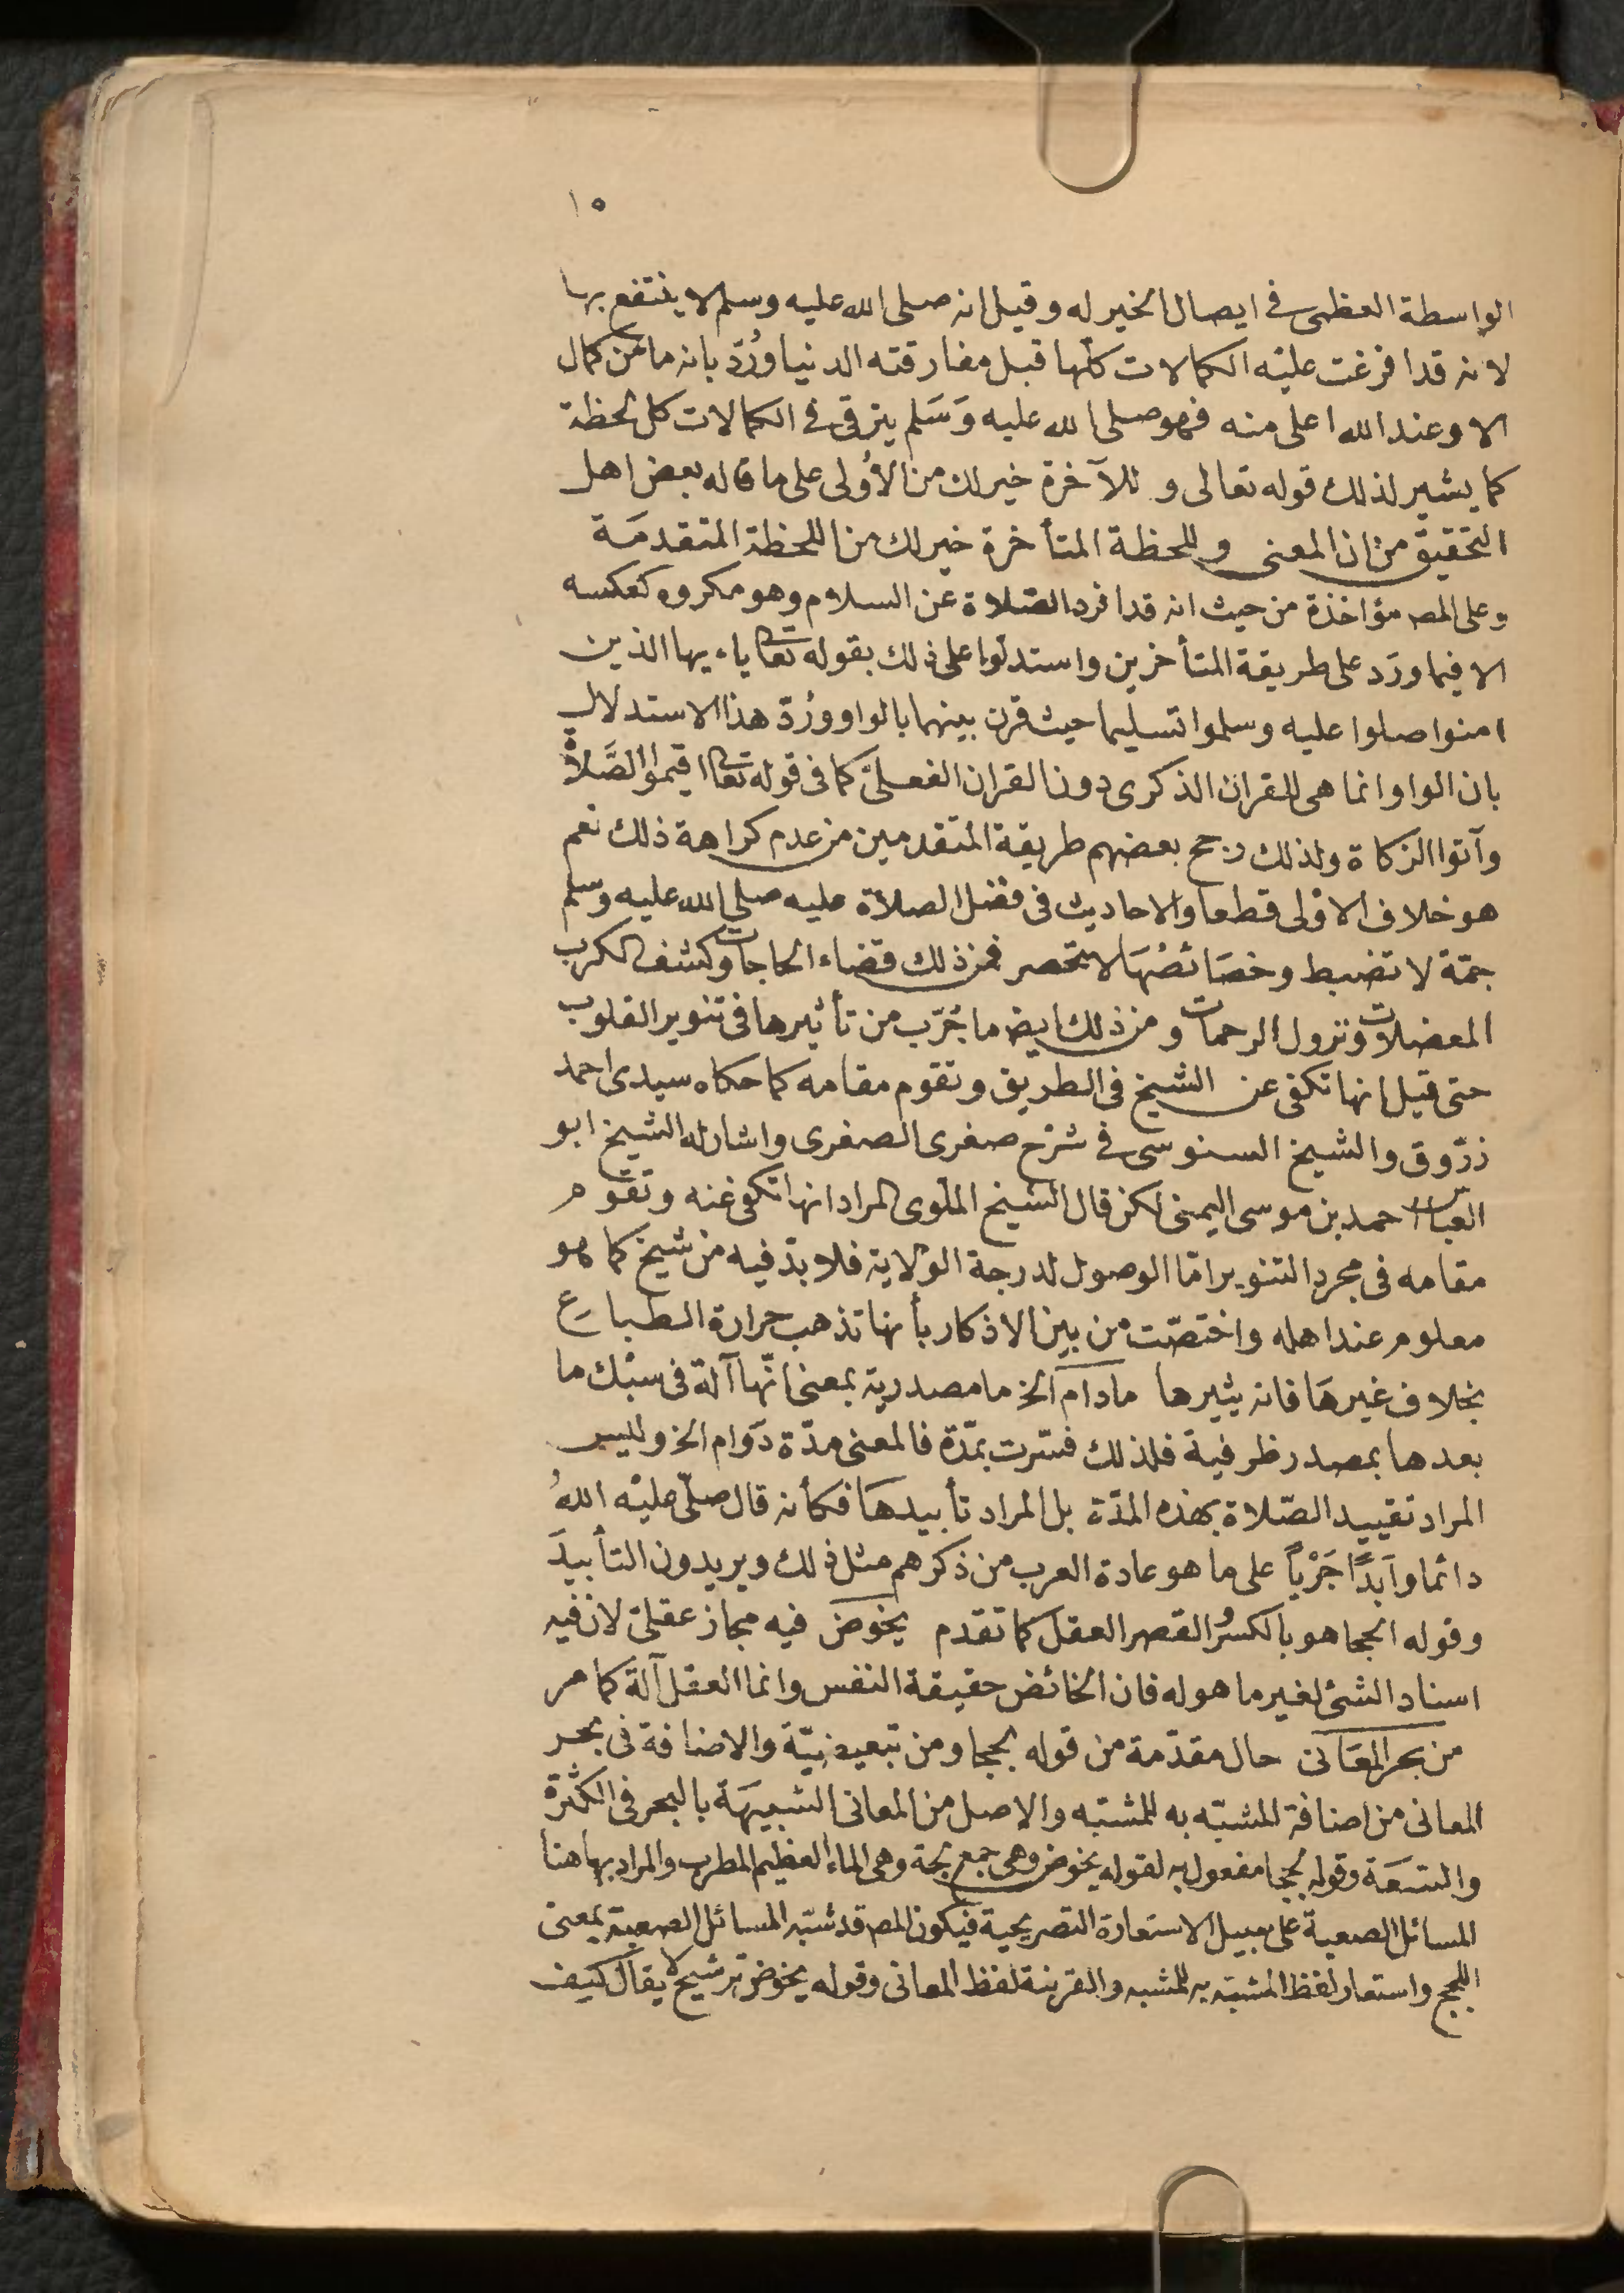 ١٥
الواسطة العظمى فى ايصال الخير له وقيل انه صلى الله عليه وسلم لا ينتفع بها
لانه قد افرغت عليْه الكمالات كلها قبل مفارقته الدنيا ورُدّ بانه ما من كمال
الا وعند الله اعلى منه فهو صلى الله عليه وَسَلم يترقى فى الكمالات كل لحظة
كما يشير لذلك قوله تعالى وللآخرة خير لك من الأولى على ما قاله بعض اهل
التحقيق من ان المعنى وللحظة المتأخرة خير لك من اللحظة المتقدمَة
وعلى المصـ مؤاخذة من حيث انه قد افرد الصّلاة عن السلام وهو مكروه كعكسه
الا فيما ورَد على طريقة المتأخرين واستدلوا على ذلك بقوله تعا ياءيها الذين
امنوا صلوا عليه وسلموا تسليما حيث قرن بينهما بالواو ورُدّ هذا الاستدلال
بان الواو انما هى للقران الذكرى دون القران الفعلىّ كما فى قوله تعا اقيموا الصَّلاةَ
وآتوا الزكاة ولذلك رجح بعضهم طريقة المتقدمين من عدم كراهة ذلك نعم
هو خلاف الاوْلى قطعا والاحاديث فى فضل الصلاة عليه صلى الله عليه وسلم
جمّة لا تضبط وخصَائصُهَا لا تنحصر فمن ذلك قضاء الحاجات وكشف الكرب
المعضلات ونزول الرحمات ومن ذلك ايضـ ما جُرّب من تأثيرها فى تنوير القلوب
حتى قيل انها تكفى عن الشيخ فى الطريق وتقوم مقامه كما حكاه سيدى احمد
زرّوق والشيخ السنوسى فى شرْح صغرى الصغرى واشار له الشيخ ابو
العباس احمد بن موسى اليمنى لكن قال الشيخ الملّوى المراد انها تكفى عنه وتقوم
مقامه فى مجرد التنوير امّا الوصول لدرجة الولاية فلا بدّ فيه من شيخ كما هو
معلوم عند اهله واختصّت من بين الاذكار بأنها تذهب حرارة الطباع
بخلاف غيرهَا فانه يثيرها مادام الخ ما مصدرية بمعنى انّها آلة فى سبْك ما
بعدها بمصدر ظرفية فلذلك فسّرت بمدّة فالمعنى مدّة دَوام الخ وليس
المراد تقييد الصّلاة بهذه المدّة بل المراد تأبيدهَا فكأنه قال صلّى عليْه اللهُ
دائما وَأبَدًا جَرْيًا على ما هو عادة العرب من ذكرهم مثل ذلك ويريدون التأبيدَ
وقوله الحجا هو بالكسر والقصر العقل كما تقدم يخوض فيه مجاز عقلىّ لان فيه
اسناد الشئ لغير ما هو له فان الخائض حقيقة النفس وانما العقل آلة كما مر
من بحر المعَانى حال مقدّمة من قوله لججا ومن تبعيضيّة والاضافة فى بحر
المعانى من اضافة المشبّه به للمشبّه والاصل من المعانى الشبيهَة بالبحر فى الكثرة
والسّعَة وقوله لججا مفعول به لقوله يخوض وهى جمع لجة وهى الماء العظيم المطرب والمراد بها هنا
المسائل الصعبة على سبيل الاستعارة التصريحية فيكون المصـ قد شبّه المسائل الصعبة بمعنى
اللجج واستعار لفظ المشبّه به للمشبه والقرينة لفظ المعانى وقوله يخوض ترشيح لا يقال كيف